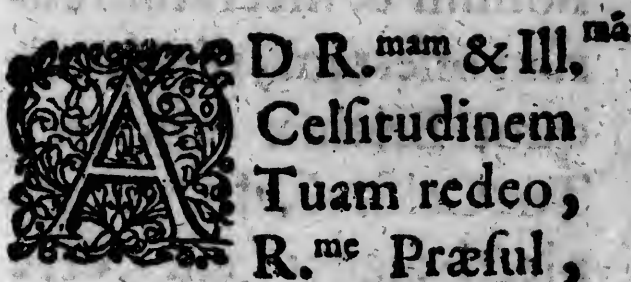 AD R.mam & Ill.má
Celſitudinem
Tuam redeo,
R.me Præſul,